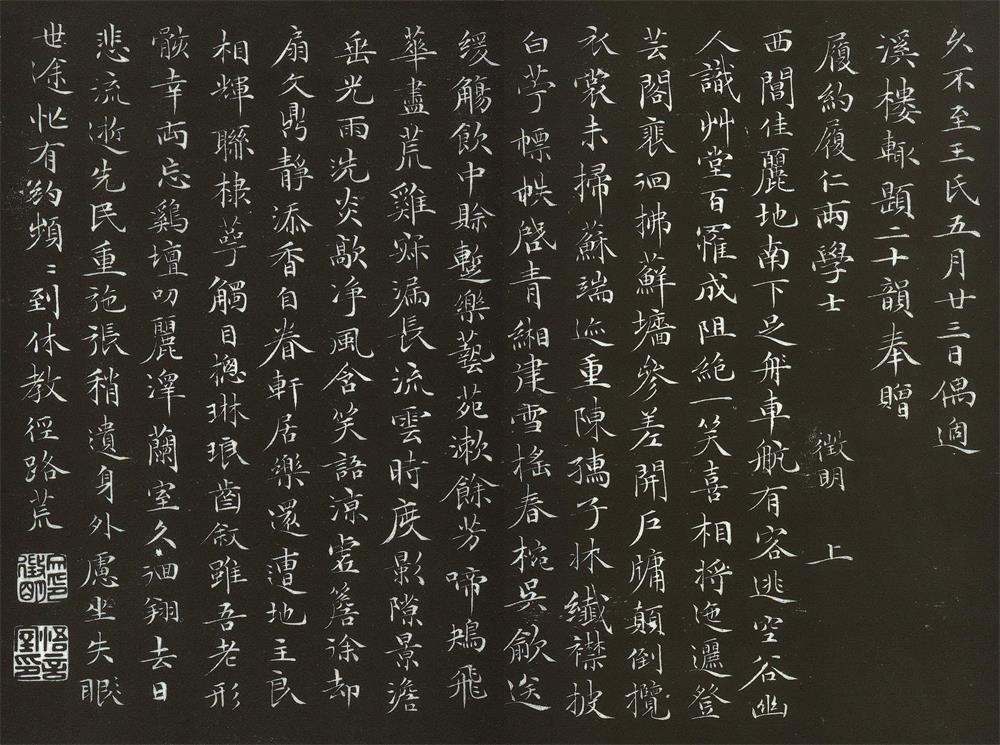 久不至王氏五月廿三日偶過
溪樓輒題二十韻奉贈
履約履仁兩學士
徵明 上
西閶佳麗地南下足舟車航有容逃空谷幽
人識艸堂百罹成阻絕一笑喜相將迤邐登
芸閣裵徊拂蘚墻參差開戶牖顛倒攬
衣裳未掃蘇端迹重陳孺子牀纖襟披
白苧幖帙啓青緗建雪榣春椀吳歈送
緩觴飲中賒蹔樂藝苑漱餘芳啼鴂飛
華盡荒雞寐漏長流雲時度影隙景澹
垂光雨洗炎歊淨風含笑語涼虛簷徐却
扇文鼎靜添香自眷軒居樂還遭地主良
相輝聯棣萼觸目摠琳琅齒敘雖吾老形
骸幸兩忘鷄壇叨麗澤蘭室久徊翔去日
悲流逝先民重弛張稍遺身外慮坐失眼
世途忙有約頻〻到休教徑路荒